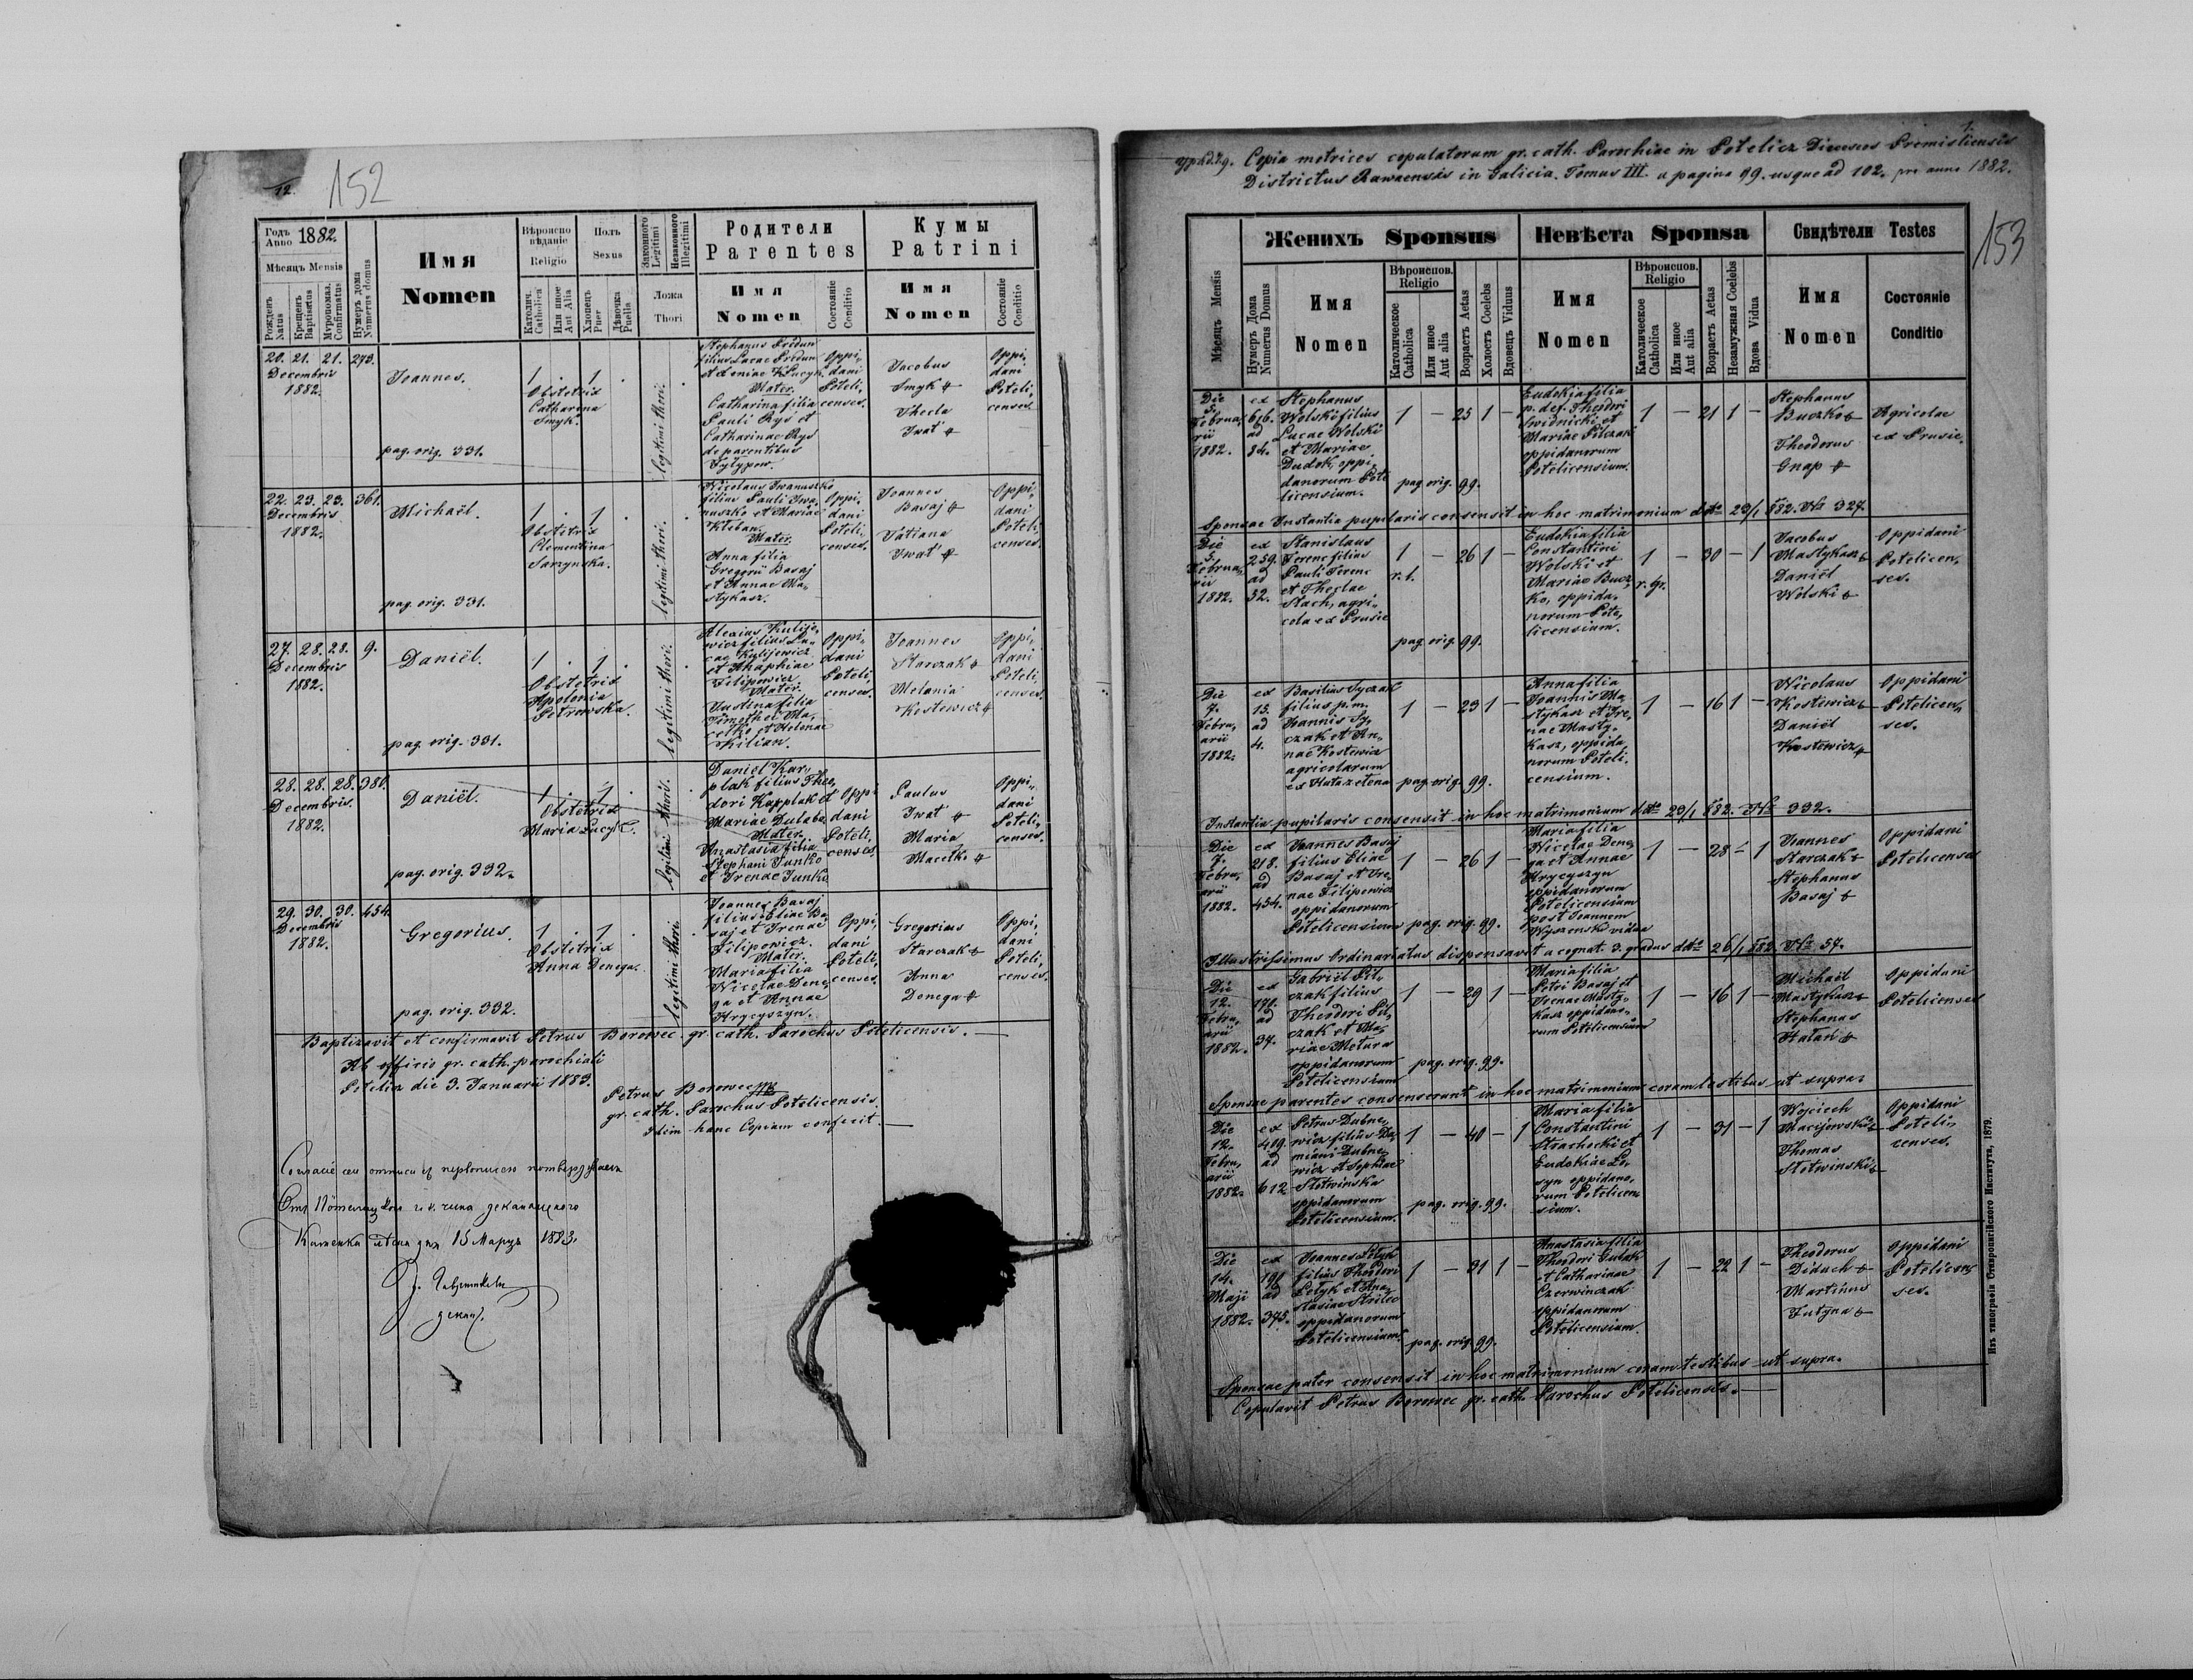 12.
152
Годъ
Anno 1882.
Мѣсяцъ Mensis
Рожденъ
Natus
Крещенъ
Baptisatus
Мѵропомаз.
Confirmatus
Нумеръ дома
Numerus domus
Имя
Nomen
Вѣроиспо
вѣданіе
Religio
Католич.
Catholica
Или иное
Aut Alia
Полъ
Sexus
Хлопецъ
Puer
Дѣвочка
Puella
Законного
Legitimi
Незаконного
Illegitimi
Ложа
Thori
Родители
Parentes
Имя
Nomen
Состояніе
Conditio
Кумы
Patrini
Имя
Nomen
Состояніе
Conditio
20. 21. 21. 273.
Decembris
1882.
Joannes.
pag. orig. 331.
1 . 1 .
Obstetrix
Catharina
Smyk.
legitimi thori.
Stephanus Predun
filius Lucae Predun
et Xeniae Klucyk.
Mater.
Catharina filia
Pauli Rys et
Catharinae Rys
de parentibus
Fylypow.
Oppi,
dani
Poteli,
censes.
Jacobus
Smyk +
Thecla
Iwat +
Oppi,
dani
Poteli,
censes.
22. 23. 23. 361.
Decembris
1882.
Michaël.
pag. orig. 331.
1 . 1 .
Obstetrix
Clementina
Sarzynska.
legitimi thori.
Nicolaus Iwanuszko
filius Pauli Iwa,
nuszko et Mariae
Kilian.
Mater.
Anna filia
Gregorii Basaj
et Annae Ma,
stykasz.
Oppi,
dani
Poteli,
censes.
Joannes
Basaj +
Tatiana
Iwat +
Oppi,
dani
Poteli,
censes.
27. 28. 28. 9.
Decembris
1882.
Daniël.
pag. orig. 331.
1 . 1 .
Obstetrix
Apolonia
Petrowska.
legitimi thori.
Alexius Kulije,
wicz filius Lu,
cae Kulijewicz
et Anaphiae
Filipowicz
Mater.
Justina filia
Timothei Ma,
cełko et Helenae
Kilian.
Oppi,
dani
Poteli,
censes.
Joannes
Starczak +
Melania
Kostewicz +
Oppi,
dani
Poteli,
censes.
28. 28. 28. 380.
Decembris.
1882.
Daniël.
pag. orig. 332.
1 . 1 .
Obstetrix
Maria Lucyk.
legitimi thori.
Daniel Kar,
plak filius Theo,
dori Kapplak et
Mariae Dulaba
Mater.
Anastasia filia
Stephani Junko
et Irenae Junko
Oppi
dani
Poteli,
censes.
Paulus
Iwat +
Maria
Macełko +
Oppi,
dani
Poteli,
censes.
29. 30. 30. 454.
Decembris
1882.
Gregorius.
pag. orig. 332.
1 . 1 .
Obstetrix
Anna Denega.
legitimi thori.
Joannes Basaj
filius Eliae Ba,
saj et Irenae
Filipowicz.
Mater.
Maria filia
Nicolae Dene,
ga et Annae
Hrycyszyn.
Oppi,
dani
Poteli,
censes.
Gregorius
Starczak +
Anna
Denega +
Oppi,
dani
Poteli,
censes.
Baptizavit et confirmavit Petrus Borowec gr. cath. Parochus Potelicensis.
Ab officio gr. cath. parochiali
Potelicz die 3. Januarii 1883.
Petrus Borowec mp
gr. cath. Parochus Potelicensis.
Idem hanc Copiam confecit.
15 Марта 1883.
1.
153
Copia metrices copulatorum gr. cath. Parochiae in Potelicz Dioeceseos Premisliensis
Districtus Rawaensis in Galicia. Tomus III. a pagina 99. usque ad 102. pro anno 1882.
Мѣсяцъ Mensis
Женихъ Sponsus
Нумеръ Дома
Numerus Domus
Имя
Nomen
Вѣроиспов.
Religio
Католическое
Catholica
Или иное
Aut alia
Возрастъ Aetas
Холостъ Coelebs
Вдовецъ Viduus
Невѣста Sponsa
Имя
Nomen
Вѣроиспов.
Religio
Католическое
Catholica
Или иное
Aut alia
Возрастъ Aetas
Незамужная Coelebs
Вдова Vidua
Свидѣтели Testes
Имя
Nomen
Состояніе
Conditio
Die
5.
Februa,
rii
1882.
ex
616.
ad
84.
Stephanus
Wolski filius
Lucae Wolski
et Mariae
Dudok, oppi,
danorum Pote
licensium.
1 — 25 1 —
pag. orig. 99.
Eudokia filia
p. def. Theodori
Swidnicki et
Mariae Pilczak
oppidanorum
Potelicensium.
1 — 21 1 —
Stephanus
Buczko +
Theodorus
Gnap +
Agricolae
ex Prusie.
Sponsae Instantia pupilaris consensit in hoc matrimonium ddto 23/1 882. No 327.
Die
5.
Februa,
rii
1882.
ex
259.
ad
32.
Stanislaus
Ferenc filius
Pauli Ferenc
et Theclae
Stach, agri,
cola ex Prusie
1 — 26 1 —
r. l.
pag. orig. 99.
Eudokia filia
Constantini
Wolski et
Mariae Bucz,
ko, oppida,
norum Pote,
licensium.
1 — 30 — 1
r. gr.
Jacobus
Mastykasz +
Daniël
Wolski +
Oppidani
Potelicen,
ses.
Die
7.
Febru,
arii
1882.
ex
15.
ad
4.
Basilius Syczak
filius p. m.
Joannis Sy,
czak et An,
nae Kostewicz
agricolarum
1 — 23 1 —
pag. orig. 99.
Anna filia
Joannis Ma
stykasz et Ire,
nae Masty,
kasz, oppida
norum Poteli,
censium.
1 — 16 1 —
Nicolaus
Kostewicz +
Daniël
Kostewicz +
Oppidani
Potelicen,
ses.
Instantia pupilaris consensit in hoc matrimonium ddto 29/1 882. No 332.
Die
7.
Febru,
arii
1882.
ex
218.
ad
454.
Joannes Basaj
filius Eliae
Basaj et Ire,
nae Filipowicz
oppidanorum
Potelicensium
1 — 26 1 —
pag. orig. 99.
Maria filia
Nicolae Dene,
ga et Annae
Hrycyszyn
oppidanorum
Potelicensium
post Joannem
Wyszenski vidua
1 — 28 — 1
Joannes
Starczak +
Stephanus
Basaj +
Oppidani
Potelicenses
Illustrissimus Ordinariatus dispensavit a cognat. 3. gradus ddto 26/1 882. No 57.
Die
12.
Febru,
arii
1882.
ex
170.
ad
37.
Gabriël Pil,
czak filius
Theodori Pil,
czak et Ma,
riae Metura
oppidanorum
Potelicensium
1 — 29 1 —
pag. orig. 99.
Maria filia
Petri Basaj et
Irenae Masty,
kasz oppidano,
rum Potelicensium
1 — 16 1 —
Michaël
Mastykasz +
Stephanus
Hałan +
Oppidani
Potelicenses
Sponsae parentes consenserunt in hoc matrimonium coram testibus ut supra.
Die
12.
Febru,
arii
1882.
ex
419.
ad
612
Petrus Dubne,
wicz filius Da,
miani Dubne,
wicz et Sophiae
Słotwinska
oppidanorum
Potelicensium.
1 — 40 — 1
pag. orig. 99.
Maria filia
Constantini
Strachocki et
Eudokiae Lo,
syn oppidano,
rum Potelicen
sium.
1 — 31 — 1
Wojciech
Macijowski +
Thomas
Słotwinski +
Oppidani
Poteli,
censes.
Die
14.
Maji
1882.
ex
198
ad
375.
Joannes Petyk
filius Theodori
Petyk et Ana,
stasiae Strilec
oppidanorum
Potelicensium.
1 — 31 1 —
pag. orig. 99.
Anastasia filia
Theodori Gulak
et Catharinae
Czerwinczak
oppidanorum
Potelicensium.
1 — 22 1 —
Theodorus
Diduch +
Martinus
Futyna +
Oppidani
Potelicen,
ses.
Sponsae pater consensit in hoc matrimonium coram testibus ut supra.
Copulavit Petrus Borowec gr. cath. Parochus Potelicensis.
Изъ типографіи Ставропигійского Института, 1879.